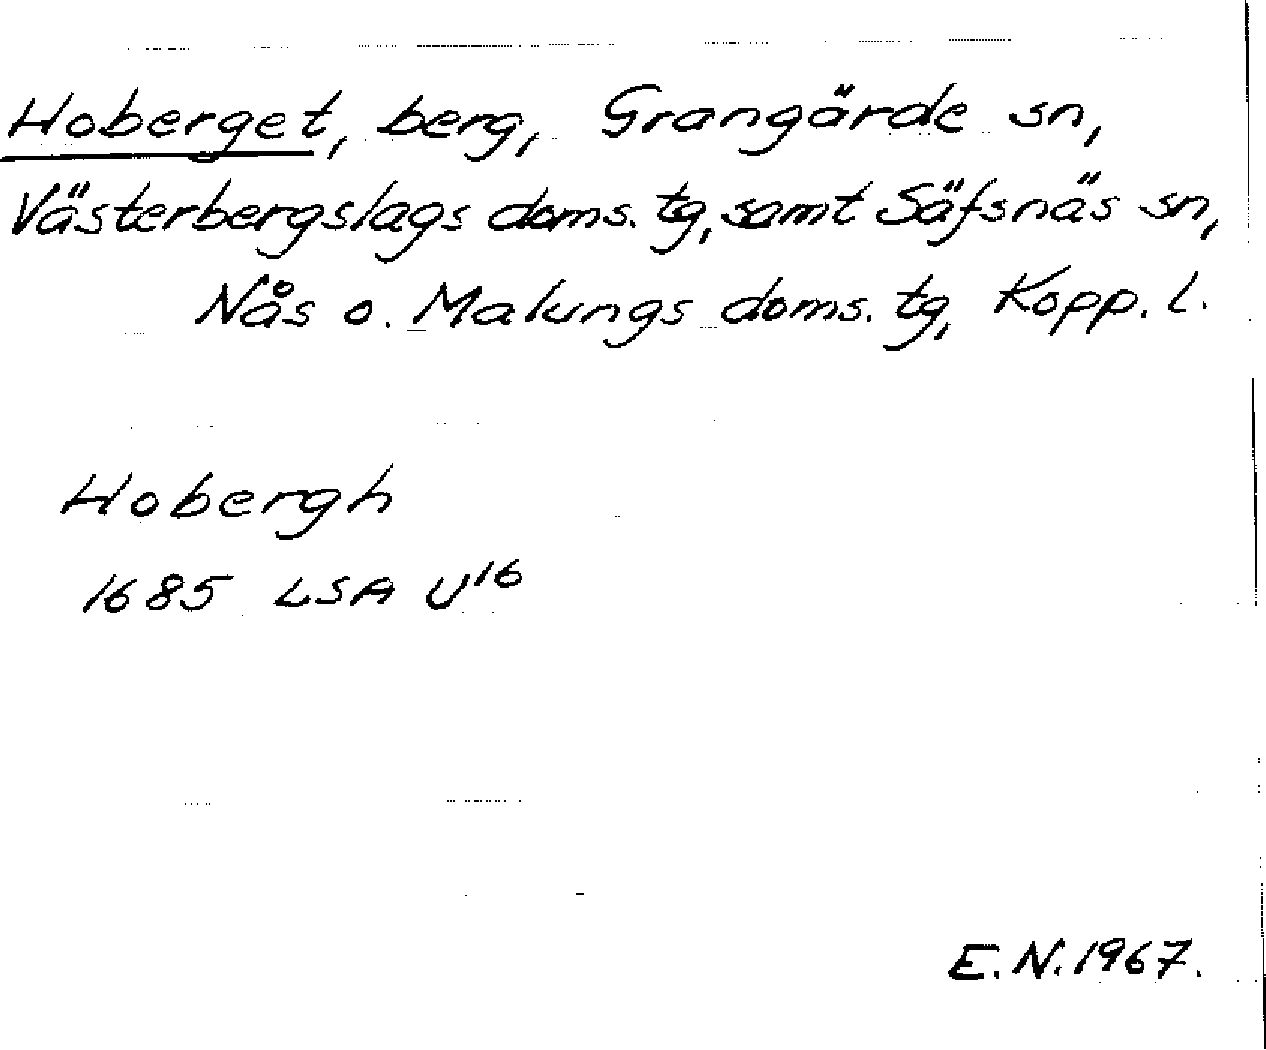 Hoberget, berg, Grangärde sn,
Västerbergslags doms. tg, samt Säfsnäs sn,
Nås o. Malungs doms. tg, Kopp. l.
Hobergh
1685 LSA U16
E.N. 1967.